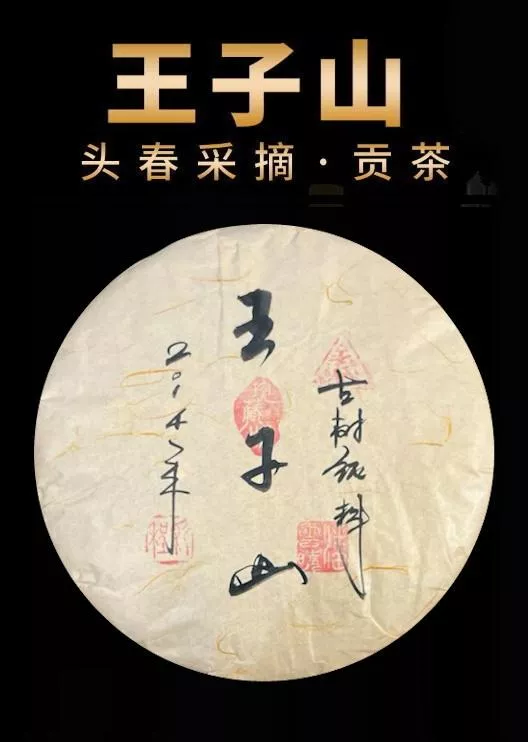 王子山
头春采摘·贡茶
古树纯料
王子山
珍藏
2014年